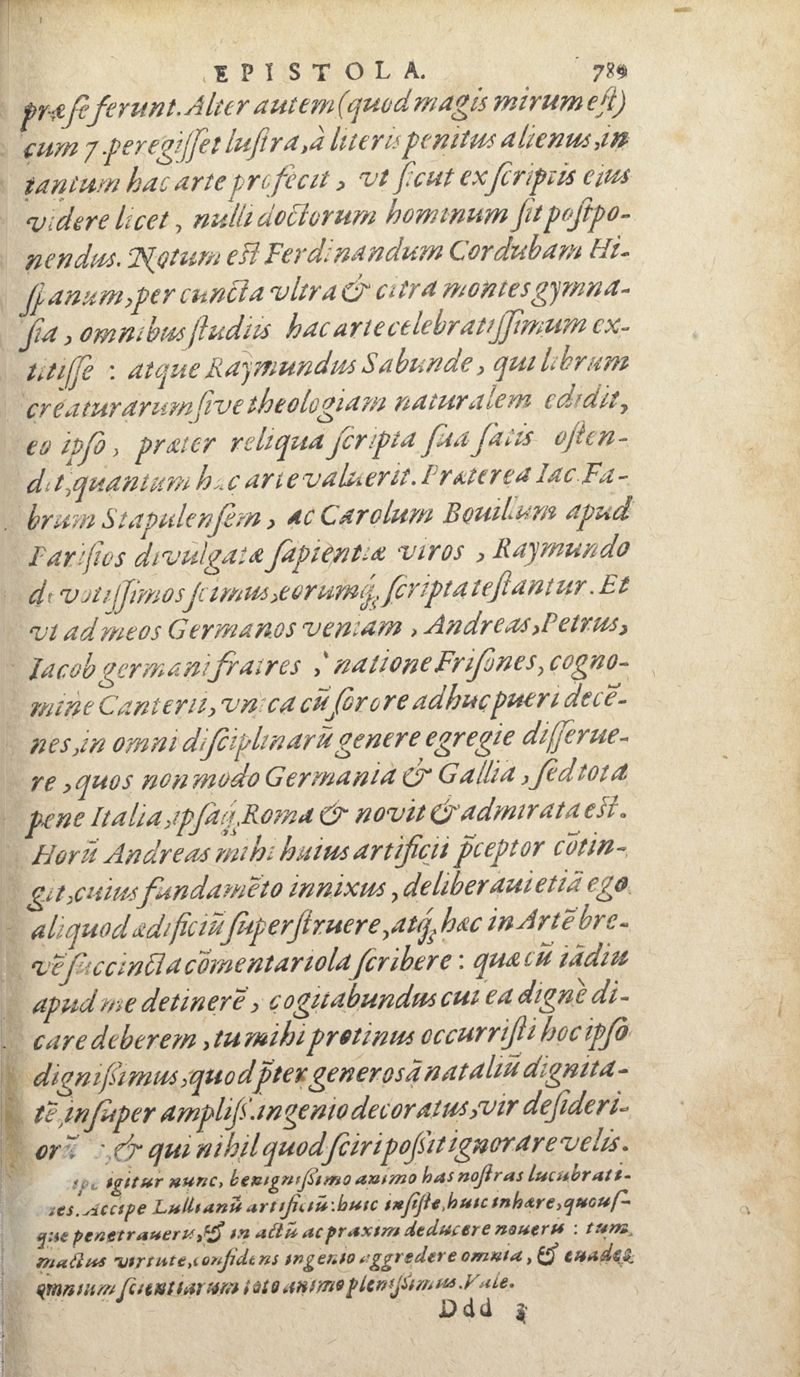 EPISTOLA. 789
præ se ferunt. Alter autem (quod magis mirum est)
cum 7. peregisset lustra, à literis penitus alienus, in
tantum hac arte profecit, vt sicut ex scriptis eius
videre licet, nulli doctorum hominum sit postpo-
nendus. Notum est Ferdinandum Cordubam Hi-
spanum, per cuncta vltra & citra montes gymna-
sia, omnibus studiis hac arte celebratissimum ex-
titisse : atque Raymundus Sabunde, qui librum
creaturarum sive theologiam naturalem edidit,
eo ipso, præter reliqua scripta sua satis osten-
dit, quantum hac arte valuerit. Præterea Iac. Fa-
brum Stapulensem, ac Carolum Bouillum apud
Parisios divulgatæ sapientiæ viros, Raymundo
devotissimos scimus, eorumq; scripta testantur. Et
vt ad meos Germanos veniam, Andreas, Petrus,
Iacob germani fratres, natione Frisones, cogno-
mine Canterii, vnica cū sorore adhuc pueri decē-
nes, in omni disciplinarū genere egregie differue-
re, quos non modo Germania & Gallia, sed tota
pene Italia, ipsaq; Roma & novit & admirata est.
Horū Andreas mihi huius artificii p̄ceptor cōtin-
git, cuius fundamēto innixus, deliberaui etiā ego
aliquod ædificiū superstruere, atq; hæc in Artē bre-
vē succincta cōmentariola scribere : quæ cū iā diu
apud me detinerē, cogitabundus cui ea digne di-
care deberem, tu mihi protinus occurristi hoc ipso
dignissimus, quod p̄ter generosā nataliū dignita-
tē, insuper ampliss. ingenio decoratus, vir desideri-
& qui nihil quod sciri possit ignorare velis.
igitur nunc, benignissimo animo has nostras lucubrati-
Accipe Lullianū artificiū: huic insiste, huic inhære, quousq-
que penetraueris, & in actū ac praxim deducere noueris : tum
mactus virtute, confidens ingenio aggredere omnia, & euades
omnium scientiarum toto animo plenissimus. Vale.
Ddd 3